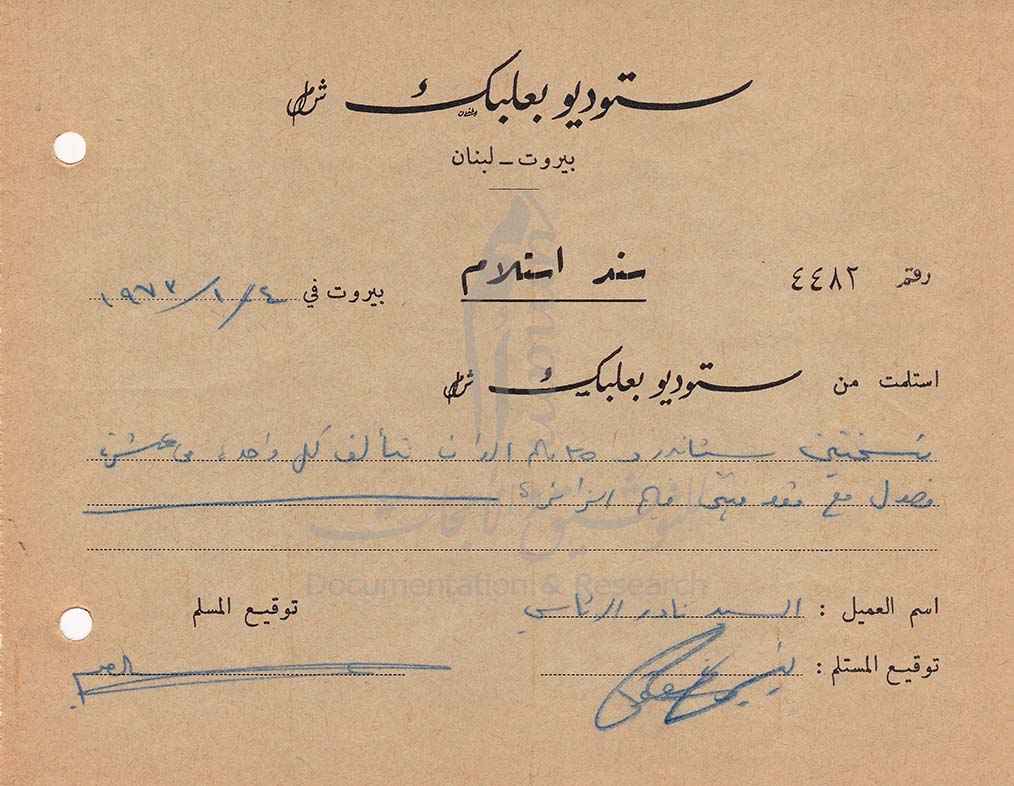 ستوديو بعلبك ش م ل
بيروت - لبنان
رقم ٤٤٨٢
سند استلام
بيروت في ٤/١/١٩٧٣
استلمت من ستوديو بعلبك ش م ل
نسختين ستاندرد ٣٥ ملم الوان تتألف كل واحدة من عشرة
فصول مع
اسم العميل : السيد نادر الاتاسي
توقيع المسلم
توقيع المستلم :
Documentation & Research
للتوثيق والأبحاث